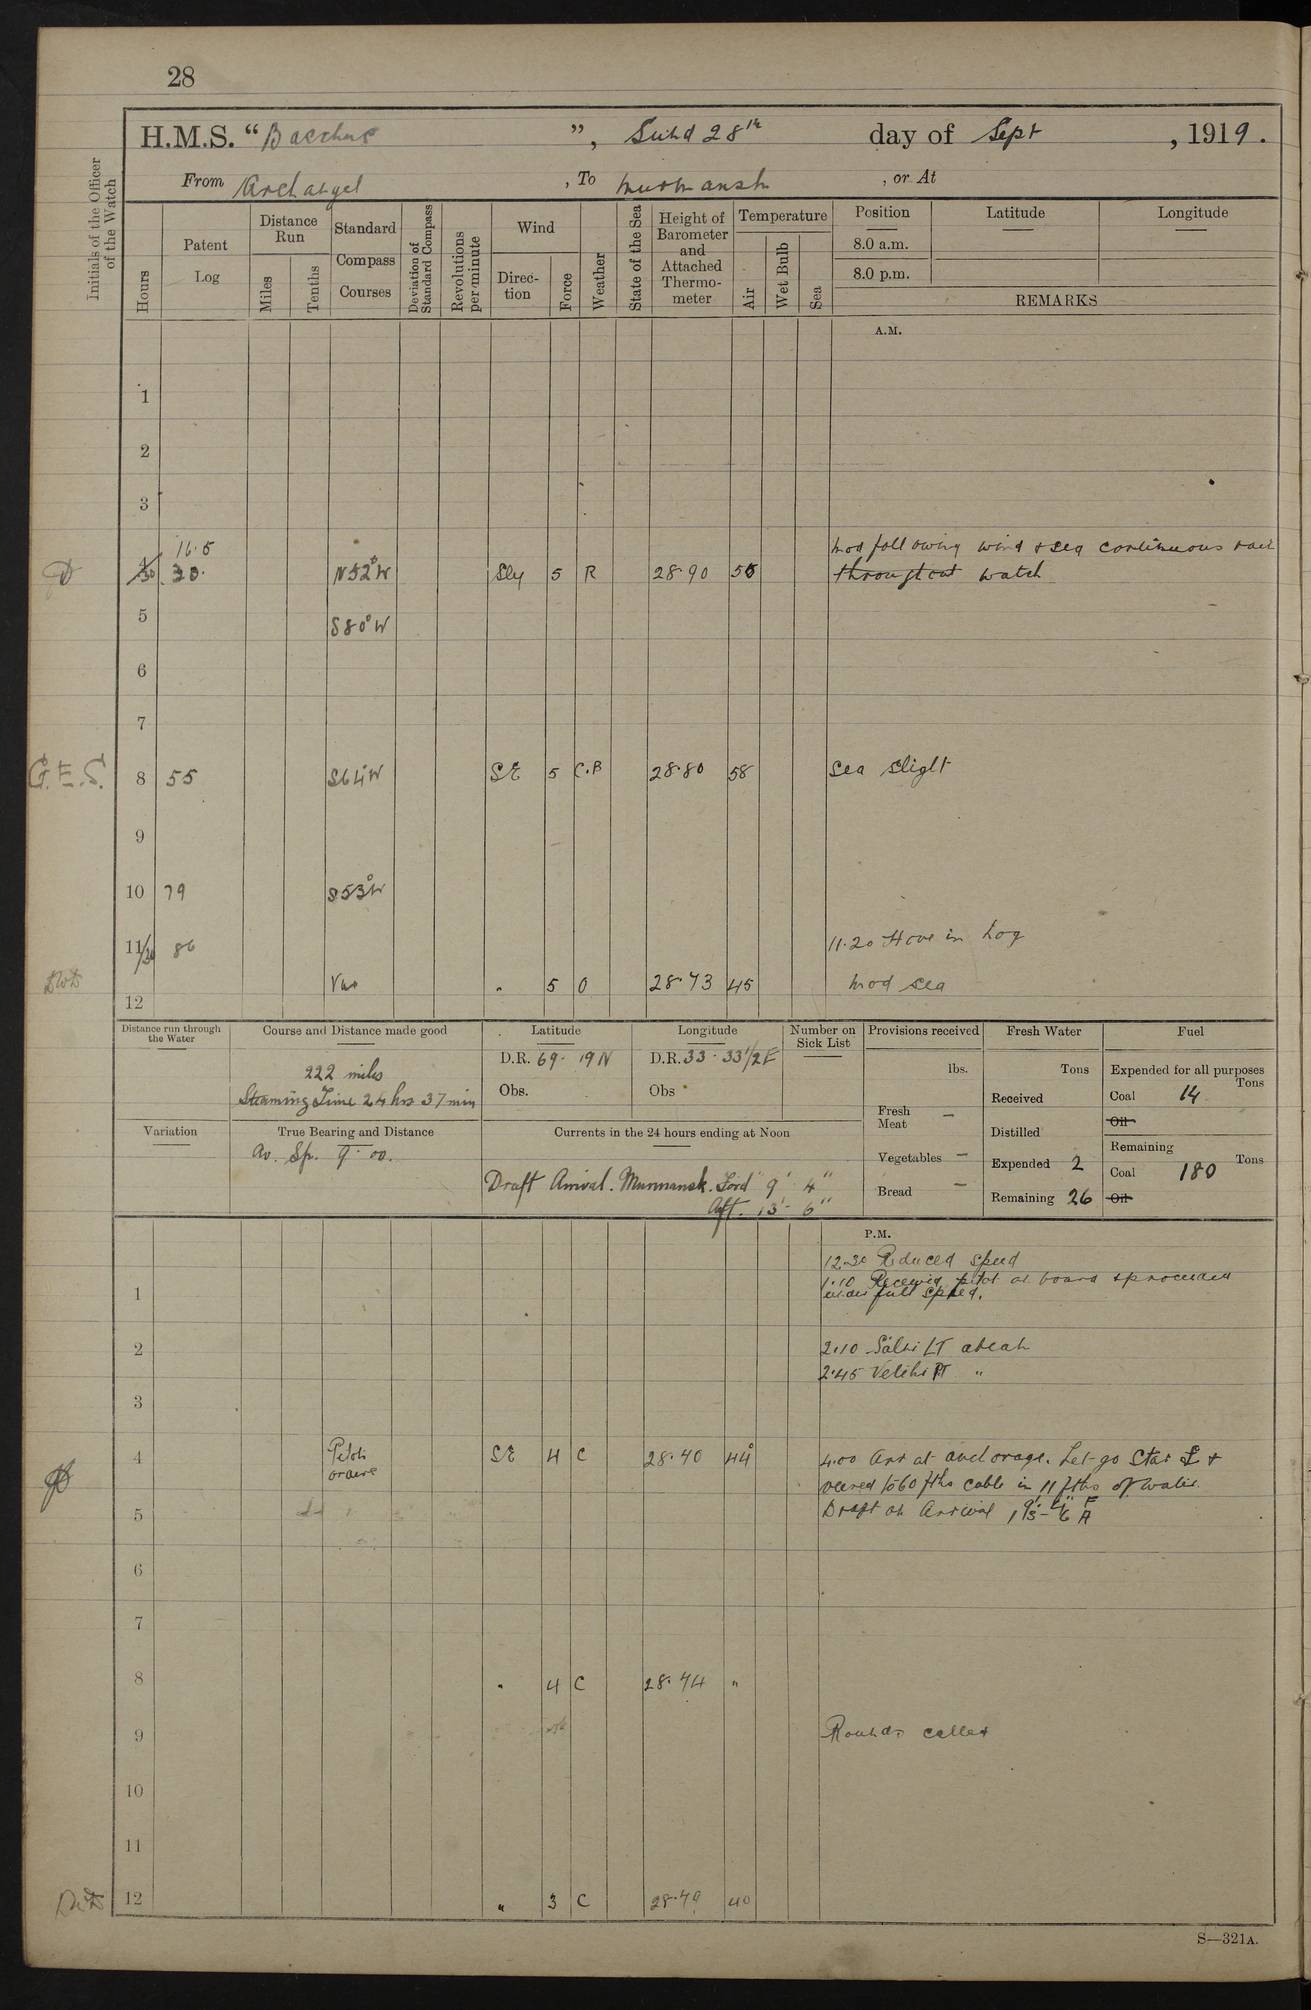 28
H.M.S. "Bacchus", Sund 28th day of Sept, 1919.
From Archangel, To Murmansk, or At
Initials of the Officer of the Watch
Hours
Patent Log
Distance Run
Miles
Tenths
Standard Compass Courses
Deviation of Standard Compass
Revolutions per minute
Wind
Direction
Force
Weather
State of the Sea
Height of Barometer and Attached Thermometer
Temperature
Air
Wet Bulb
Sea
Position
8.0 a.m.
8.0 p.m.
Latitude
Longitude
REMARKS
A.M.
1
2
3
16.5
4/30 30. N52°W Sly 5 R 28.90 55
Mod following wind & sea continuous rain
throughout watch
5 S80°W
6
7
G.E.S. 8 55 S64°W SE 5 C.B 28.80 58 Sea slight
9
10 79 S53°W
11/20 86 11.20 Hove in Log
12 Var " 5 O 28.73 45 Mod sea
Distance run through the Water
Course and Distance made good
222 miles
Steaming Time 24 hrs 37 min
Latitude
D.R. 69. 19 N
Obs.
Longitude
D.R. 33. 33 1/2 E
Obs
Number on Sick List
Provisions received
lbs.
Fresh Meat —
Vegetables —
Bread —
Fresh Water
Tons
Received
Distilled
Expended 2
Remaining 26
Fuel
Expended for all purposes
Tons
Coal 14
Oil
Remaining
Tons
Coal 180
Oil
Variation
True Bearing and Distance
Av. Sp. 9.00.
Currents in the 24 hours ending at Noon
Draft Arrival. Murmansk. Ford 9' 4"
Aft. 13'- 6"
P.M.
12.30 Reduced speed
1 1.10 Received pilot on board & proceeded
under full speed.
2 2.10 Salni LT abeam
2.45 Velihi PT "
3
4 Pilots orders SE 4 C 28.40 44° 4.00 Arr at anchorage. Let go Star &
veered to 60 fths cable in 11 fths of water.
5 Draft on Arrival 9'- 4" F
13- 6 A
6
7
8 " 4 C 28.74 "
9 Rounds called
10
11
12 " 3 C 28.79 40
S—321A.